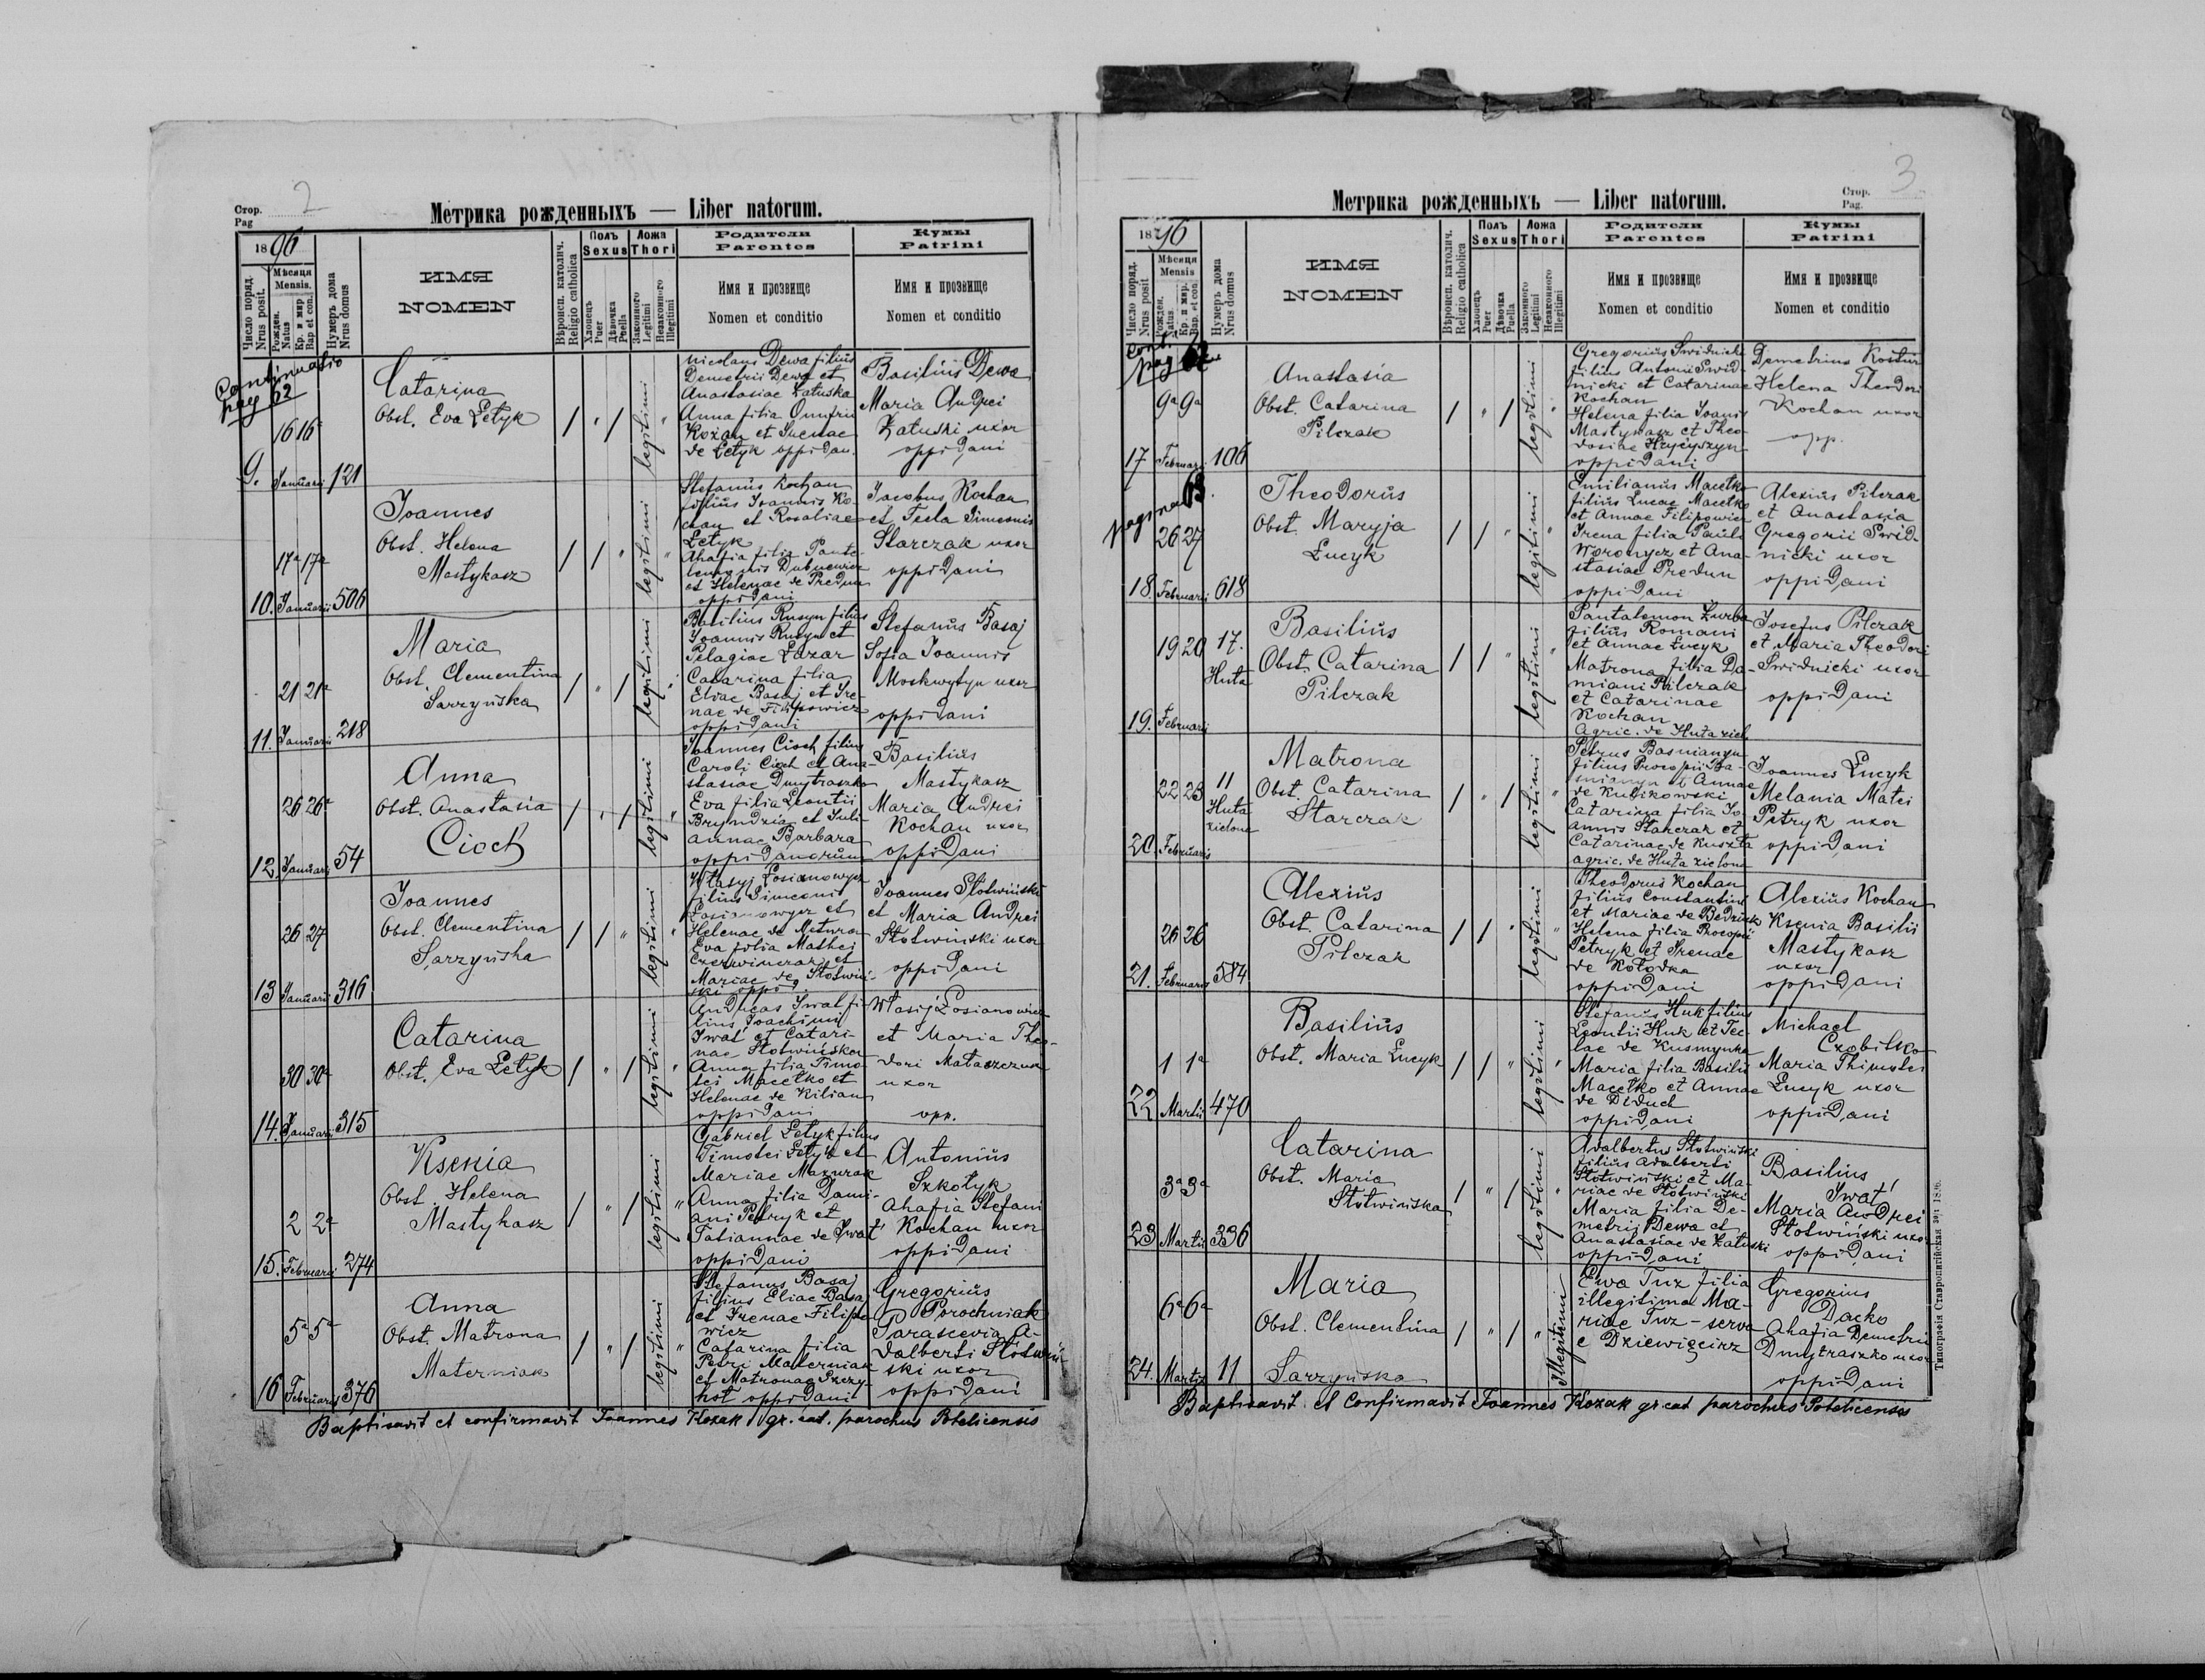 Стор.
Pag
2
Метрика рожденныхъ — Liber natorum.
1896
Число поряд.
Nrus posit.
Мѣсяця
Mensis.
Рожден.
Natus
Кр. и мир
Bap. et con.
Нумеръ дома
Nrus domus
ИМЯ
NOMEN
Вѣроисп. католич.
Religio catholica
Полъ
Sexus
Хлопецъ
Puer
Дѣвочка
Puella
Ложа
Thori
Законного
Legitimi
Незаконного
Illegitimi
Родители
Parentes
Имя и прозвище
Nomen et conditio
Кумы
Patrini
Имя и прозвище
Nomen et conditio
Continuatio
pag 62
9.
16 16
Januarii
121
Catarina
Obst. Eva Łetyk
legitimi
Nicolaus Dewa filius
Demetrii Dewa et
Anastasiae Załuska
Anna filia Onufrii
Kozan et Irenae
de Łetyk oppidan.
Basilius Dewa
Maria Andrei
Załuski uxor
oppidani
10.
17a 17a
Januarii
506
Joannes
Obst. Helena
Mastykasz
legitimi
Stefanus Kochan
filius Joannis Ko-
chan et Rosaliae
Łetyk
Ahafia filia Pante-
lemonis Dubnewicz
et Helenae de Predun
oppidani
Jacobus Kochan
et Tecla Simeonis
Starczak uxor
oppidani
11.
21 21a
Januarii
218
Maria
Obst. Clementina
Sarzyńska
legitimi
Basilius Rusyn filius
Joannis Rusyn et
Pelagiae Łazar
Catarina filia
Eliae Basaj et Ire-
nae de Filipowicz
oppidani
Stefanus Basaj
Sofia Joannis
Moskwytyn uxor
oppidani
12.
26 26a
Januarii
54
Anna
Obst. Anastasia
Cioch
legitimi
Joannes Cioch filius
Caroli Cioch et Ana-
stasiae Dmytraszko
Eva filia Leontii
Bryndzia et Juli-
annae Barbara
oppidanorum
Basilius
Mastykasz
Maria Andrei
Kochan uxor
oppidani
13
26 27
Januarii
316
Joannes
Obst. Clementina
Sarzyńska
legitimi
Wlasyj Łosianowycz
filius Simeonis
Łosianowycz et
Helenae de Matura
Eva filia Mathei
Czerwinczak et
Mariae de Słotwiń-
ski oppid.
Joannes Słotwiński
et Maria Andrei
Słotwiński uxor
oppidani
14.
30 30a
Januarii
315
Catarina
Obst. Eva Łetyk
legitimi
Andreas Iwat' fi-
lius Joachimi
Iwat' et Catari-
nae Słotwińska
Anna filia Timo-
tei Macełko et
Helenae de Kilian
oppidani
Własij Łosianowicz
et Maria Theo-
dori Mataszczuk
uxor
opp.
15.
2 2a
Februarii
274
Ksenia
Obst. Helena
Mastykasz
legitimi
Gabriel Łetyk filius
Timotei Łetyk et
Mariae Mazurak
Anna filia Dami-
ani Petryk et
Tatiannae de Iwat'
oppidani
Antonius
Szkołyk
Ahafia Stefani
Kochan uxor
oppidani
16
5a 5a
Februarii
376
Anna
Obst. Matrona
Materniak
legitimi
Stefanus Basaj
filius Eliae Basaj
et Irenae Filipo
wicz
Catarina filia
Petri Materniak
et Matronae Szczy-
hoł oppidani
Gregorius
Porochniak
Parascevia A-
dalberti Słotwiń-
ski uxor
oppidani
Baptisavit et confirmavit Joannes Kozak gr. cat. parochus Potelicensis
Стор.
Pag.
3
Метрика рожденныхъ — Liber natorum.
1896
Число поряд.
Nrus posit
Мѣсяця
Mensis
Рожден.
Natus.
Кр. и мир.
Bap. et con
Нумеръ дома
Nrus domus
ИМЯ
NOMEN
Вѣроисп. католич.
Religio catholica
Полъ
Sexus
Хлопецъ
Puer
Дѣвочка
Puella
Ложа
Thori
Законного
Legitimi
Незаконного
Illegitimi
Родители
Parentes
Имя и прозвище
Nomen et conditio
Кумы
Patrini
Имя и прозвище
Nomen et conditio
cont.
pag 62
17
9a 9a
Februar.
106
Anastasia
Obst. Catarina
Pilczak
legitimi
Gregorius Swidnicki
filius Antonii Swid-
nicki et Catarinae
Kochan
Helena filia Joanis
Mastykasz et Theo-
dosiae Hrycyszyn
oppidani
Demetrius Kostur
Helena Theodori
Kochan uxor
opp.
pagina 63.
18.
26 27
Februarii
618
Theodorus
Obst. Maryja
Łucyk
legitimi
Emilianus Macełko
filius Lucae Macełko
et Annae Filipowicz
Irena filia Pauli
Woronycz et Ana-
stasiae Predun
oppidani
Alexius Pilczak
et Anastasia
Gregorii Swid-
nicki uxor
oppidani
19.
19 20
Februarii
17.
Huta
Basilius
Obst. Catarina
Pilczak
legitimi
Pantalemon Żurba
filius Romani
et Annae Łucyk
Matrona filia Da-
miani Pilczak
et Catarinae
Kochan
Agric. de Huta ziel.
Josefus Pilczak
et Maria Theodori
Swidnicki uxor
oppidani
20.
22 23
Februaris
11
Huta
zielona
Matrona
Obst. Catarina
Starczak
legitimi
Petrus Basnianyn
filius Procopii Ba-
snianyn et Annae
de Kulikowski
Catarina filia Jo-
annis Starczak et
Catarinae de Kuszta
agric. de Huta zielona
Joannes Łucyk
Melania Matei
Petryk uxor
oppidani
21.
26 26
Februaris
584
Alexius
Obst. Catarina
Pilczak
legitimi
Theodorus Kochan
filius Constantini
et Mariae de Bedriuk
Helena filia Procopii
Petryk et Irenae
de Kołodka
oppidani
Alexius Kochan
Ksenia Basilii
Mastykasz
uxor
oppidani
22
1 1a
Martii
470
Basilius
Obst. Maria Łucyk
legitimi
Stefanus Huk filius
Leontii Huk et Tec-
lae de Kusmynka
Maria filia Basilii
Macełko et Annae
de Diduch
oppidani
Michael
Czobitko
Maria Thimotei
Łucyk uxor
oppidani
23
3a 3a
Martii
336
Catarina
Obst. Maria
Słotwińska
legitimi
Adalbertus Słotwiński
filius Adalberti
Słotwiński et Ma-
riae de Słotwiński
Maria filia De-
metrij Dewa et
Anastasiae de Załuski
oppidani
Basilius
Iwat'
Maria Andrei
Słotwiński uxor
oppidani
24.
6a 6a
Martii
11
Maria
Obst. Clementina
Sarzyńska
Illegitimi
Ewa Tuz filia
illegitima Ma-
riae Tuz - serva
e Dziewięcirz
Gregorius
Dacko
Ahafia Demetrii
Dmytraszko uxor
oppidani
Baptisavit et Confirmavit Joannes Kozak gr cat parochus Potelicensis
Типографія Ставропигійская